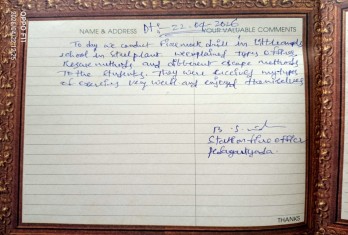 NAME & ADDRESS
YOUR VALUABLE COMMENTS
To day we conduct Fire mock drill in Little angels
school in Steel plant we explained types of fires,
Rescue methods and different escape methods
To the students. They were received my types
of exercises very well and enjoyed themselves
Station fire officer
THANKS